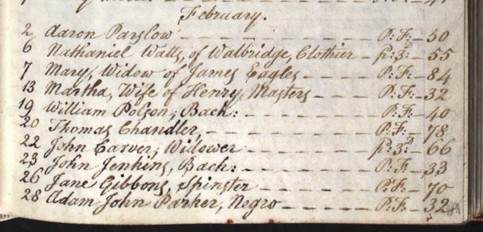 February.
2 Aaron Parslow — — — — — — P.F. — 50
6 Nathaniel Watts, of Walbridge, Clothier — p:3: — 55
7 Mary, Widow of James Eagles — — — — P.F. — 84
13 Martha, Wife of Henry, Masters — — — P.F. — 32
19 William Polson, Bach: — — — — — — P.F. — 40
20 Thomas Chandler, — — — — — — P.F. — 78
22 John Carver, Widower — — — — — p:3: — 66
23 John Jenkins, Bach: — — — — — — P.F. — 33
26 Jane Gibbons, Spinster — — — — — P.F. — 70
28 Adam John Parker, Negro — — — — P.F. — 32